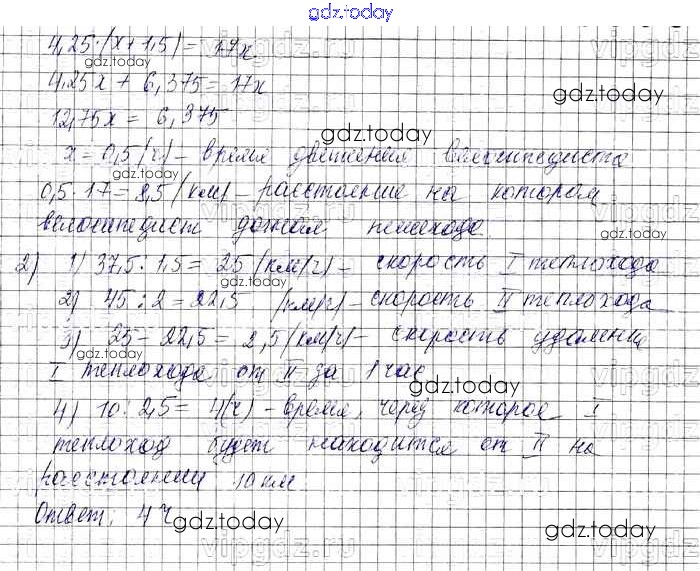 gdz.today
4,25·(x+1,5)=17x
gdz.today
4,25x + 6,375 = 17x
gdz.today
12,75x = 6,375
gdz.today
x = 0,5 (ч) – время движения велосипедиста
0,5·17 = 8,5 (км) – расстояние на котором
велосипедист догнал пешехода
2) 1) 37,5 : 1,5 = 25 (км/ч) – скорость I теплохода
gdz.today
2) 45 : 2 = 22,5 (км/ч) – скорость II теплохода
gdz.today
3) 25 – 22,5 = 2,5 (км/ч) – скорость удаления
gdz.today
I теплохода от II за 1 час
gdz.today
4) 10 : 2,5 = 4 (ч) – время, через которое I
теплоход будет находится от II на
расстоянии 10 км
Ответ: 4 ч
gdz.today
gdz.today
vipgdz.ru